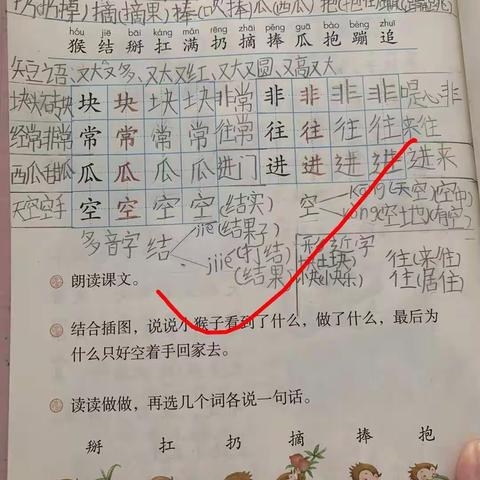 扔(扔掉) 摘(摘果) 捧( 捧) 瓜(西瓜) 抱(
hóu jiē bāi káng mǎn rēng zhāi pěng guā bào bèng zhuī
猴 结 掰 扛 满 扔 摘 捧 瓜 抱 蹦 追
又大又多、又大又红、又大又圆、又高又大
块 块 块 块 非常 非 非 非 非
经常 非常 常 常 常 常 往常 往 往 往 往 来往
西瓜 甜瓜 瓜 瓜 瓜 瓜 进门 进 进 进 进 进来
天空 空手 空 空 空 空 (结实) 空 kōng(天空)(空中)
kòng(空地)(有空)
多音字 结 jiē(结果子)
jié(打结)
(结果)
形近字
块(土块)
快(快乐)
往(来往)
住(居住)
朗读课文。
结合插图，说说小猴子看到了什么，做了什么，最后为
什么只好空着手回家去。
读读做做，再选几个词各说一句话。
掰 扛 扔 摘 捧 抱